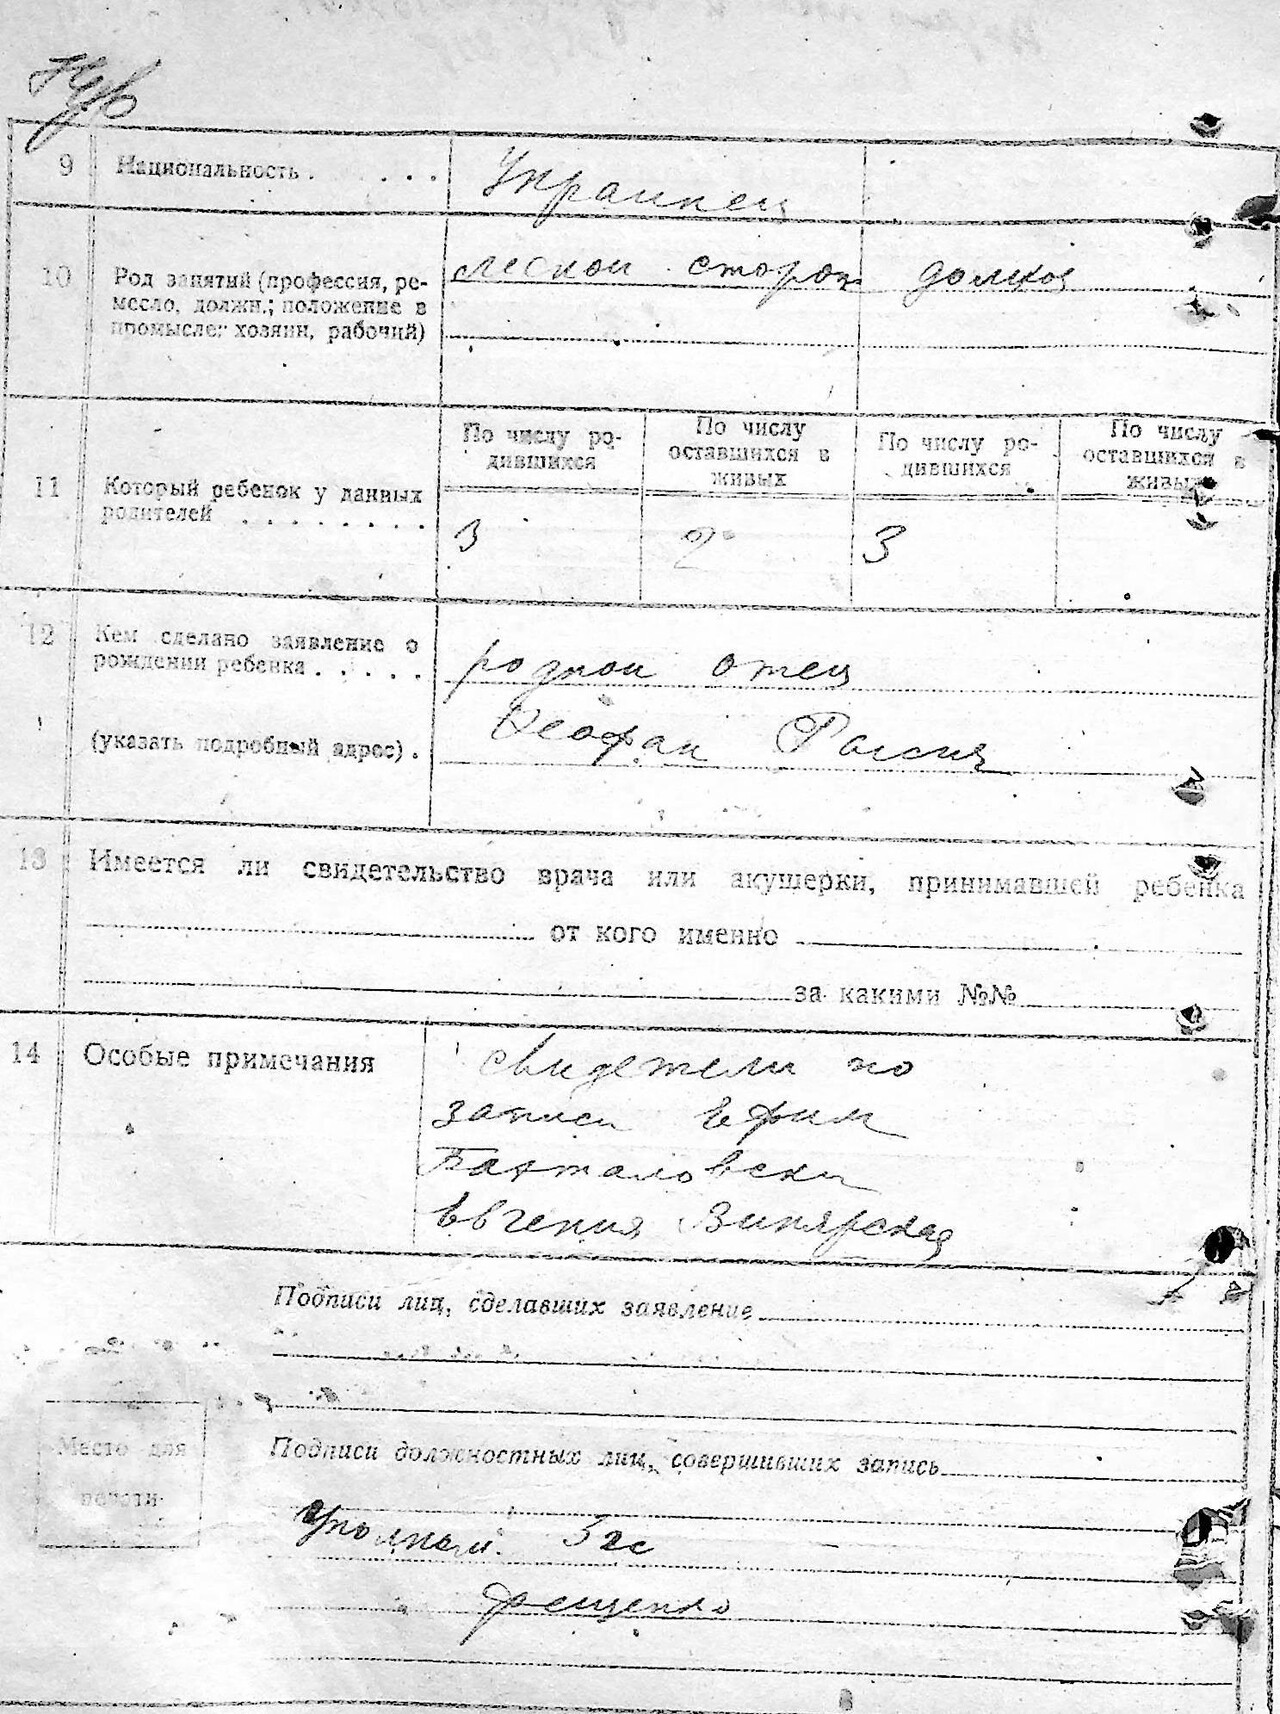 9 Национальность . . . . Украинец
10 Род занятий (профессия, ре-
месло, должн.; положение в
промысле: хозяин, рабочий)
лесной сторож
11 Который ребенок у данных
родителей . . . . . . . .
По числу ро-
дившихся
По числу
оставшихся в
живых
По числу ро-
дившихся
По числу
оставшихся в
живых
3 2 3
12 Кем сделано заявление о
рождении ребенка . . . . .
(указать подробный адрес) .
родной отец
Феофан
13 Имеется ли свидетельство врача или акушерки, принимавшей ребенка
от кого именно
за какими №№
14 Особые примечания
свидетели по
записи Ефим
Евгения Винярская
Подписи лиц, сделавших заявление
Подписи должностных лиц, совершивших запись
Место для
печати